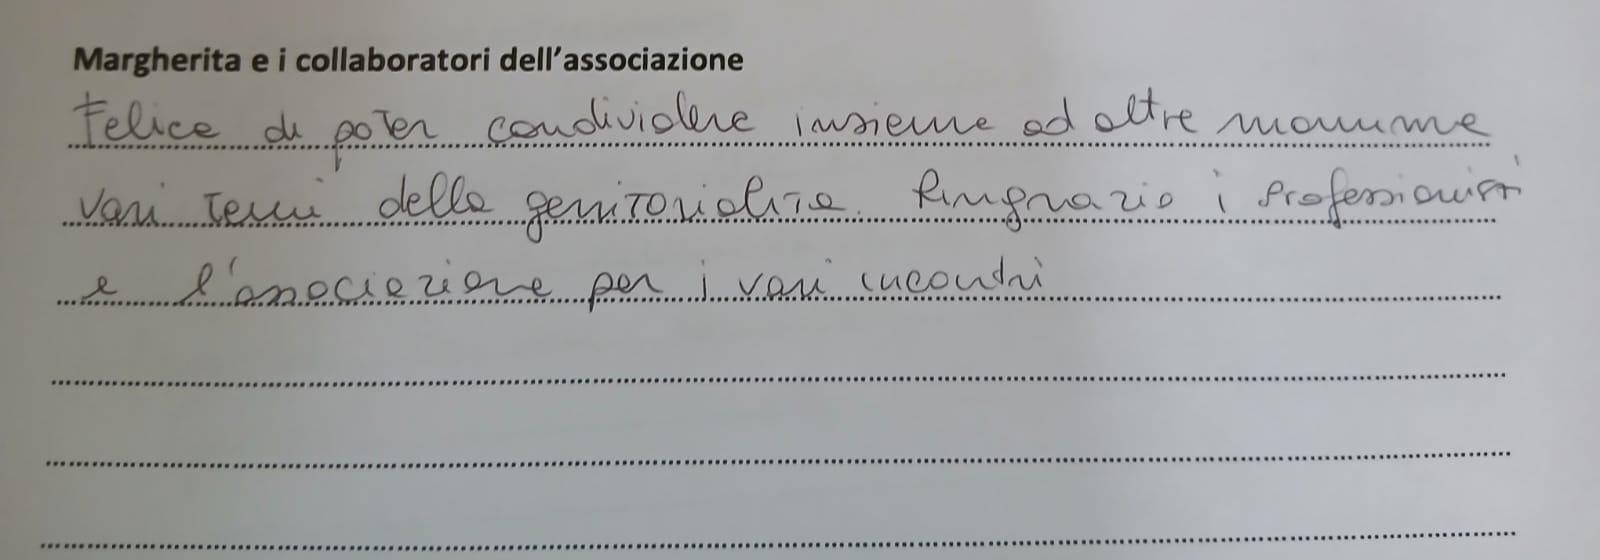 Margherita e i collaboratori dell'associazione
Felice di poter condividere insieme ad altre mamme
vari temi della genitorialità. Ringrazio i professionisti
e l'associazione per i vari incontri